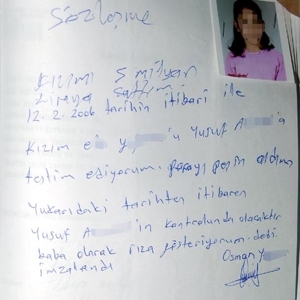 Sözleşme
Kızımı 5 milyar
liraya sattım
12.2.2006 tarihin itibari ile
Kızım e y 'ü Yusuf A 'a
teslim ediyorum. parayı peşin aldım
Yukarıdaki tarihten itibaren
Yusuf A in kontrolunda olacaktır
baba olarak rıza gösteriyorum. dedi.
imzalandı Osman Y